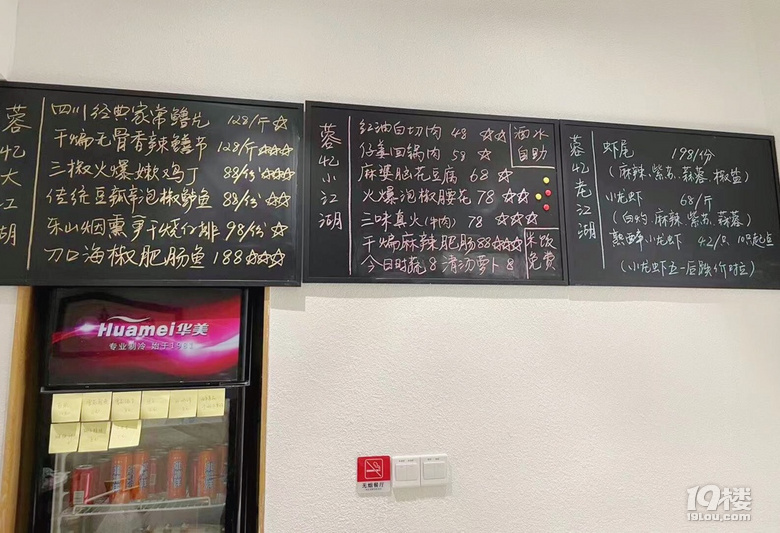 蓉忆大江湖
四川经典家常鳝片 128/斤☆
干煸无骨香辣鳝节 128/斤☆☆☆
三椒火爆嫩鸡丁 88/份☆☆
传统豆瓣辛泡椒鲈鱼 88/份☆☆
乐山烟熏 干烧仔排 98/份☆
刀口海椒肥肠鱼 188☆☆☆
蓉忆小江湖
红油白切肉 48 ☆☆
仔姜回锅肉 58 ☆
麻婆脑花豆腐 68 ☆
火爆泡椒腰花 78 ☆☆
三味真火(牛肉) 78 ☆☆☆
干煸麻辣肥肠 88☆☆☆
今日时蔬 8 清汤萝卜 8
酒水自助
米饭免费
蓉忆老江湖
虾尾 198/份
(麻辣、紫苏、蒜蓉、椒盐)
小龙虾 68/斤
(白灼、麻辣、紫苏、蒜蓉)
熟醉小龙虾 42/只 10只起点
(小龙虾五一后跌价时应)
Huamei华美
专业制冷 始于1981
无烟餐厅
19楼
19lou.com